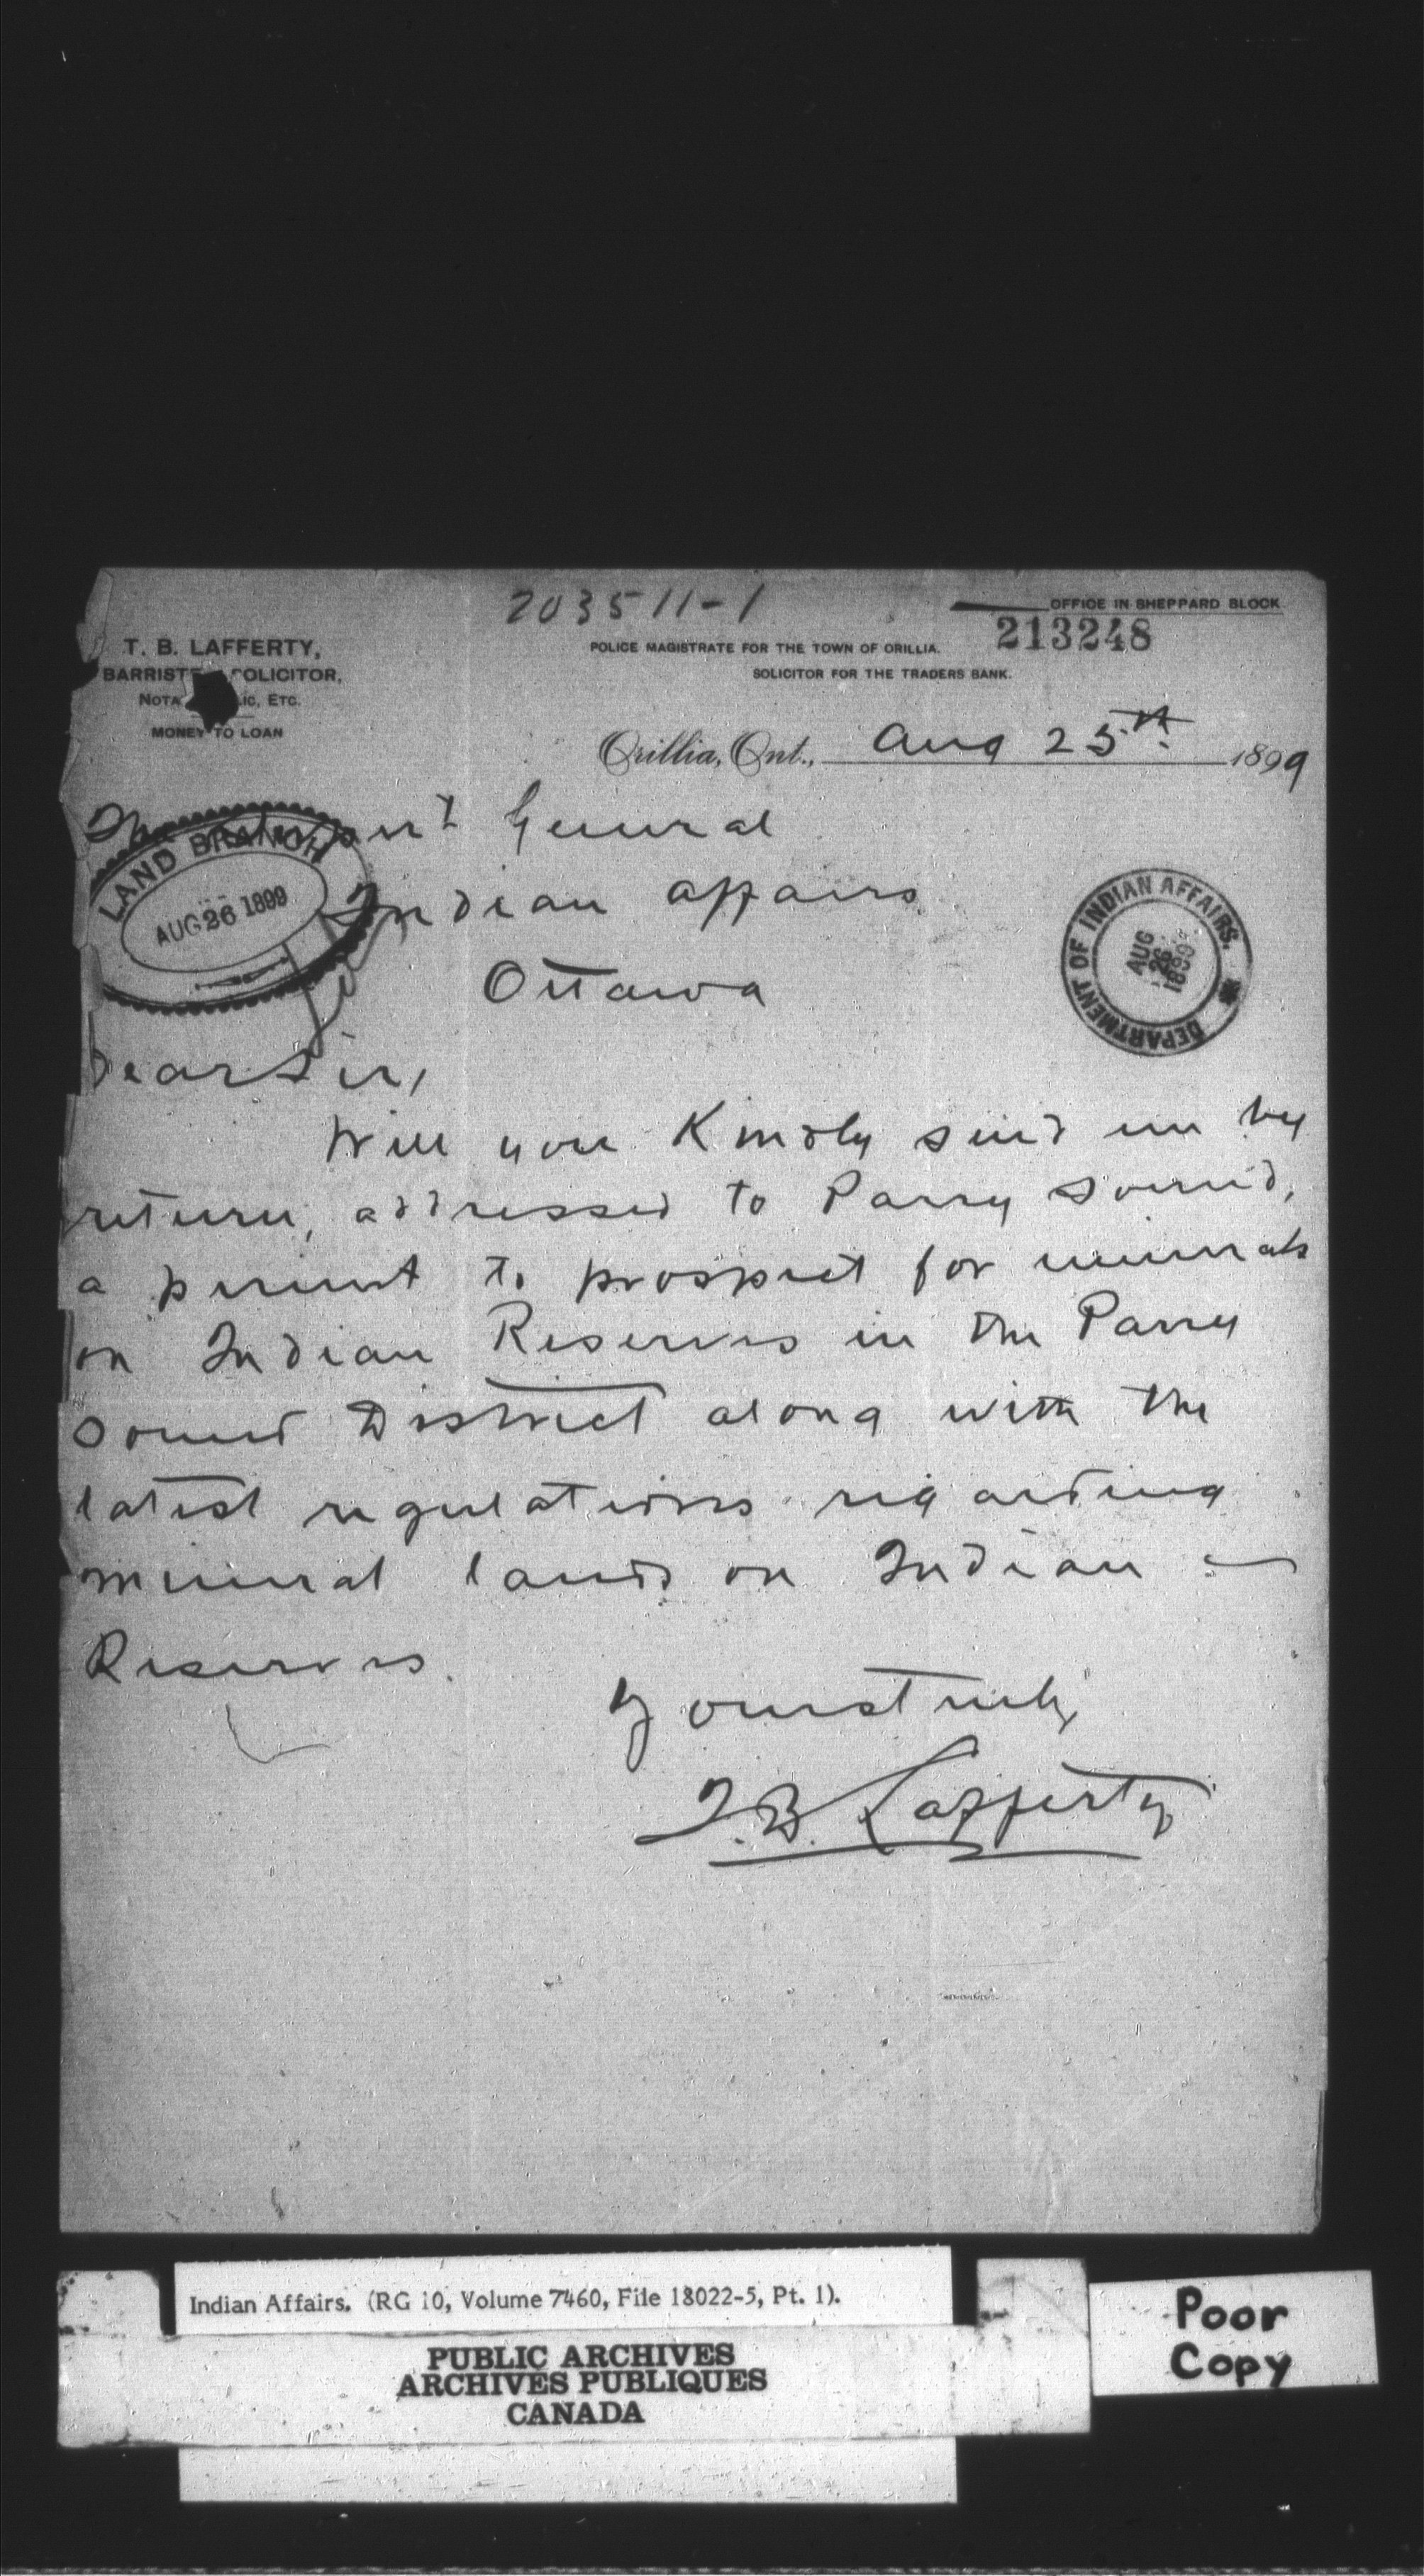 203511-1
OFFICE IN SHEPPARD BLOCK.
213248
T. B. LAFFERTY,
BARRISTE SOLICITOR,
NOTA LIC, ETC.
MONEY TO LOAN
POLICE MAGISTRATE FOR THE TOWN OF ORILLIA.
SOLICITOR FOR THE TRADERS BANK.
Orillia, Ont., Aug 25th 1899
The Supt General
Indian affairs
Ottawa
LAND BRANCH
AUG 26 1899
DEPARTMENT OF INDIAN AFFAIRS.
AUG
26
1899
Dear Sir,
Will you Kindly send me by
return, addressed to Parry Sound,
a permit to prospect for minerals
on Indian Reserves in the Parry
Sound District along with the
latest regulations regarding
mineral lands on Indian
Reserves.
Yours truly
T.B. Lafferty
Indian Affairs. (RG 10, Volume 7460, File 18022-5, Pt. 1).
PUBLIC ARCHIVES
ARCHIVES PUBLIQUES
CANADA
Poor
Copy